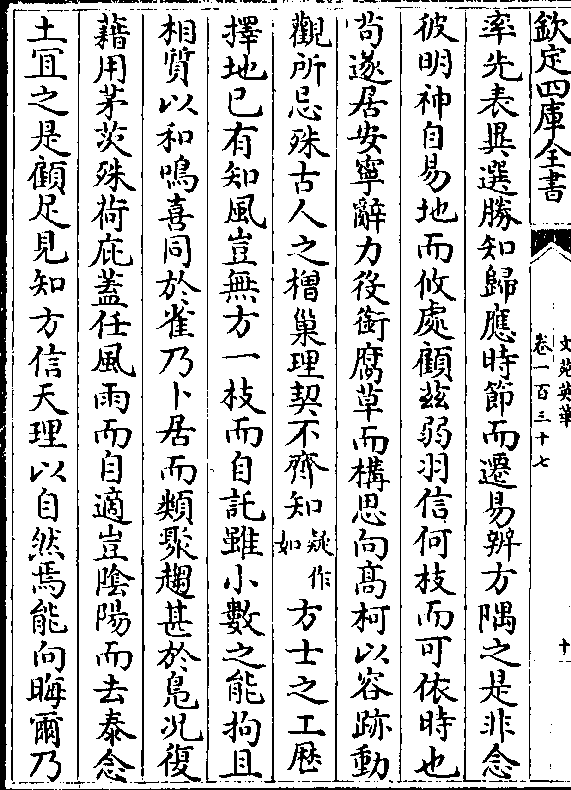 欽定四庫全書
文苑英華
卷一百三十七
十一
率先表異選勝知歸應時節而遷易辨方隅之是非念
彼明神自易地而攸處顧茲弱羽信何枝而可依時也
茍遂居安寧辭力役銜腐草而構思向髙柯以容跡動
觀所忌殊古人之橧巢理契不齊知疑作如方士之工厯
擇地已有知風豈無方一枝而自託雖小數之能拘且
相質以和鳴喜同於雀乃卜居而類聚趨甚於鳬况復
藉用茅茨殊荷庇蓋任風雨而自適豈陰陽而去泰念
土冝之是顧足見知方信天理以自然焉能向晦爾乃